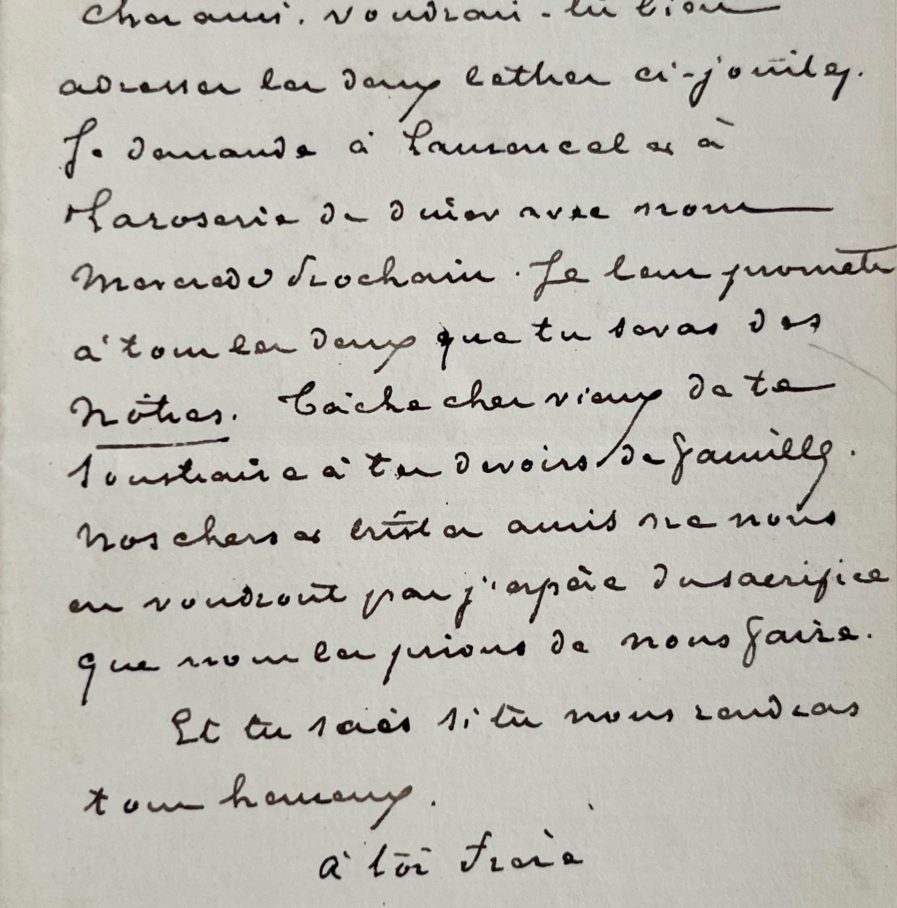 Cher ami. voudrais-tu bien
adresser les deux lettres ci-jointes.
Je demande à Laurencel et à
Laroserie de diner avec nous
Mercredi prochain. Je leur promets
à tous les deux que tu seras des
nôtres. Tâche cher vieux de te
soustraire à tes devoirs de famille.
Nos chers et tristes amis ne nous
en voudront pas j'espère du sacrifice
que nous les prions de nous faire.
Et tu sais si tu nous rendras
tous heureux.
à toi Frère